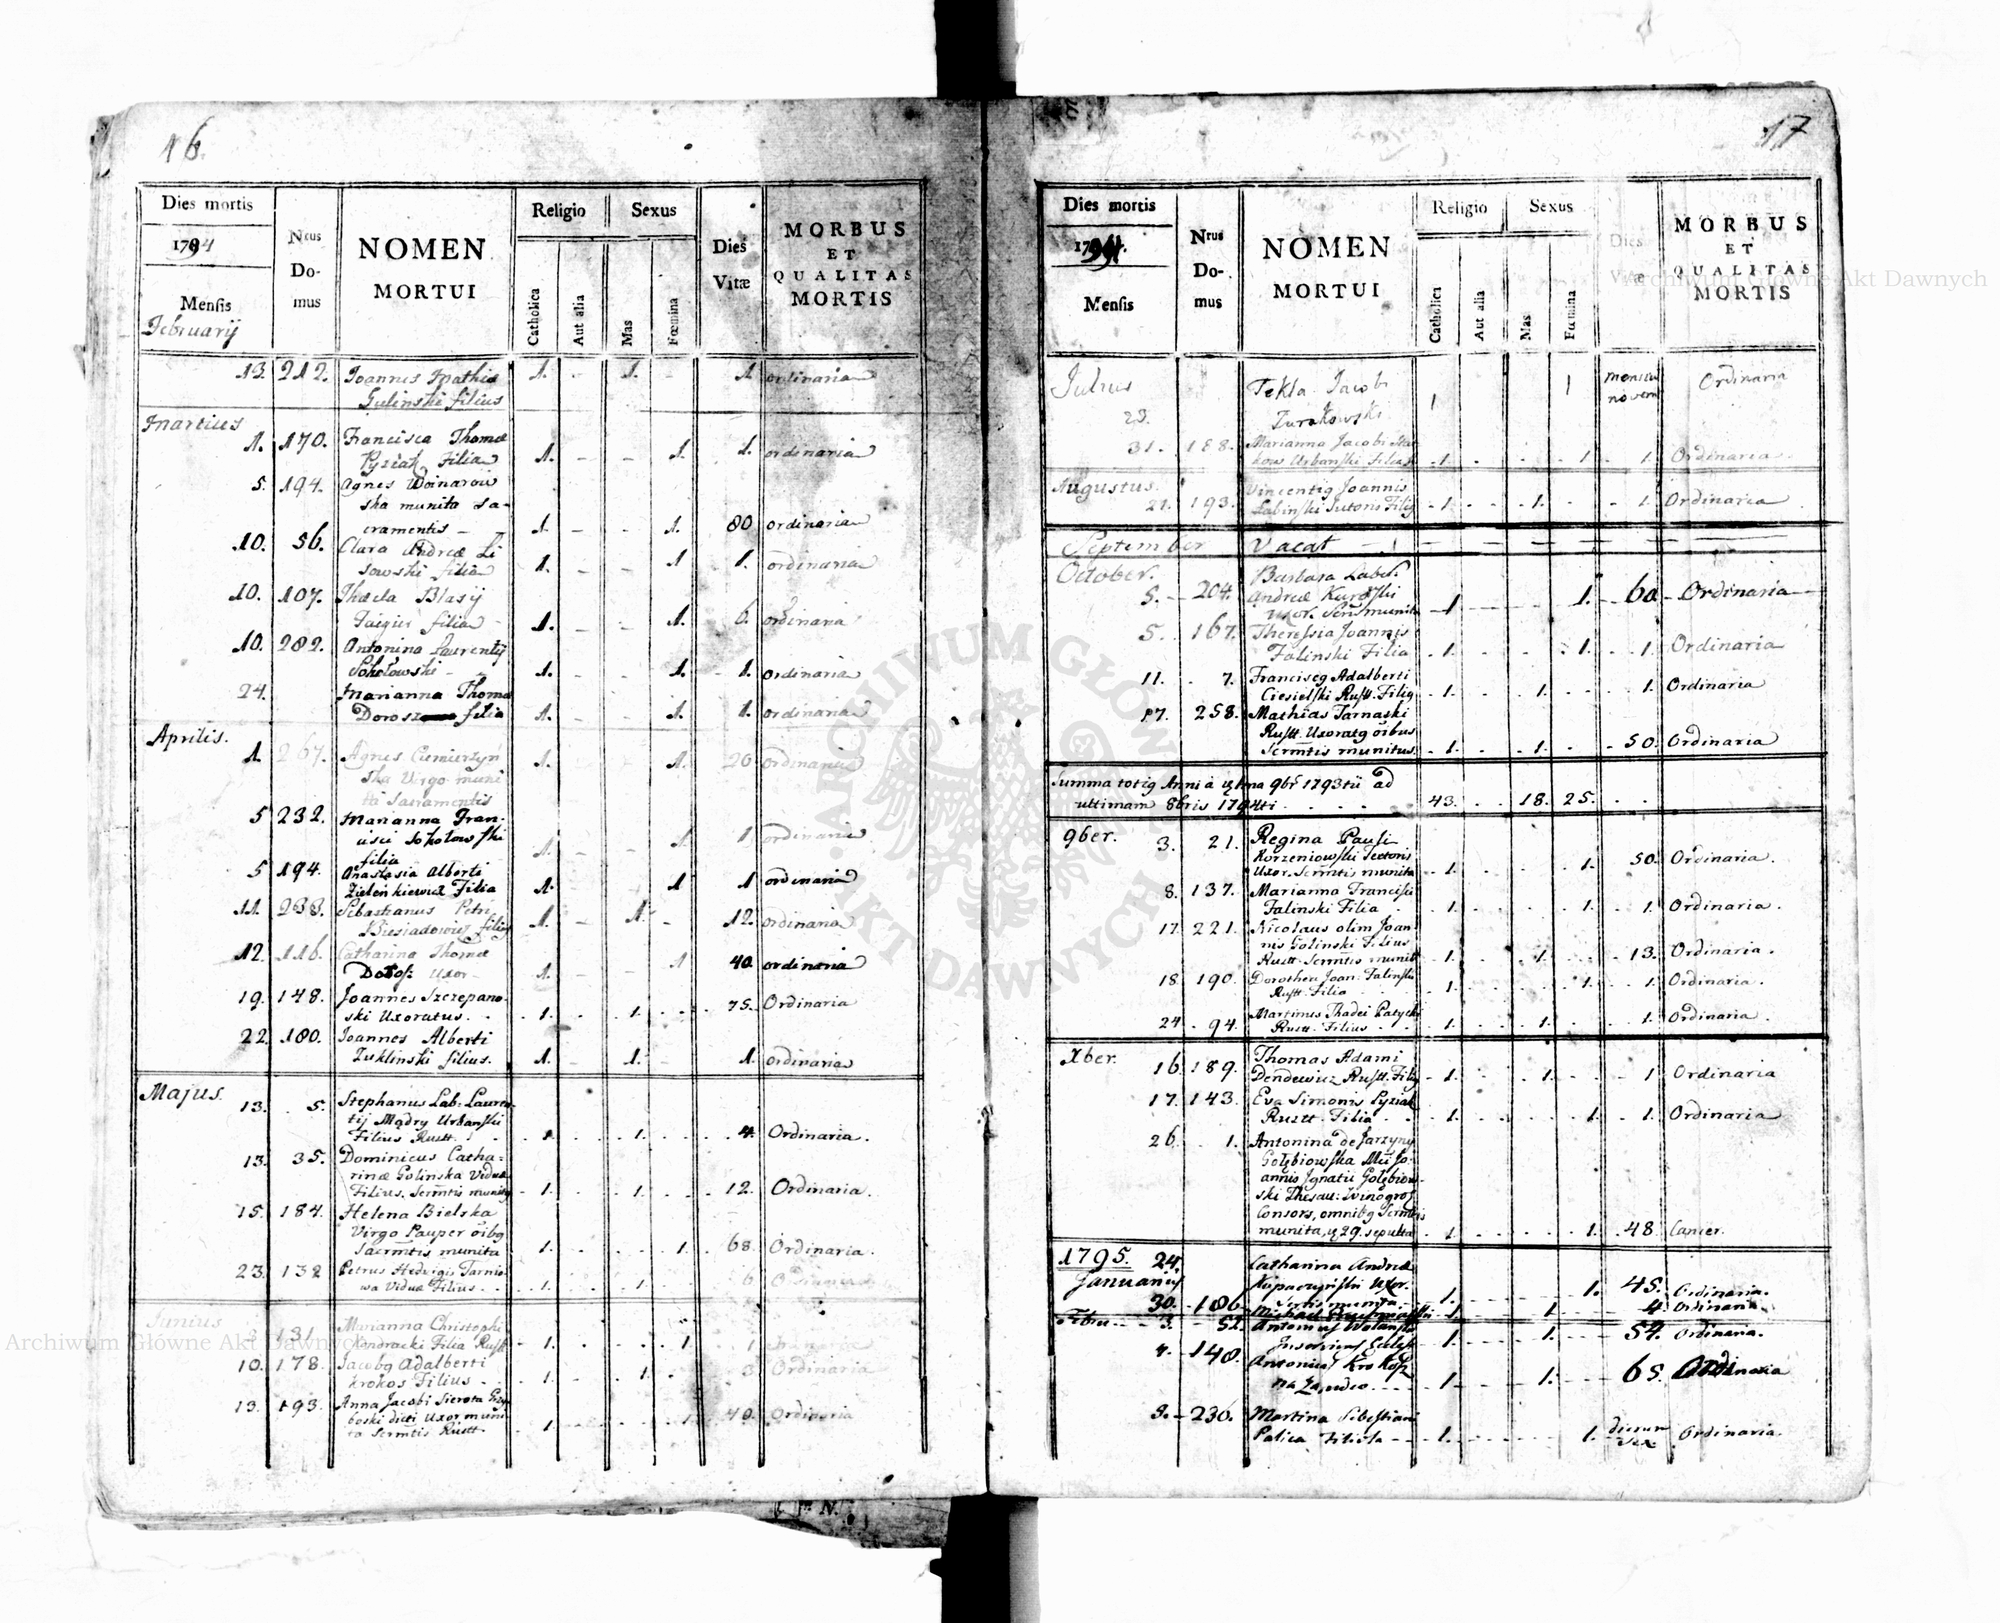 16
Dies mortis
1794
Mensis
Februarij
Nrus Domus
NOMEN MORTUI
Religio
Catholica
Aut alia
Sexus
Mas
Fœmina
Dies Vitæ
MORBUS ET QUALITAS MORTIS
13. 212. Joannes
Gulinski filius 1. - 1. - 1. ordinaria
Martius
1. 170. Francisca Thomæ
Pyziak Filia 1. - - 1. 1. ordinaria
5. 194. Agnes Woinarow
ska munita Sa-
cramentis - 1. - - 1. 80 ordinaria
10. 56. Clara Andreæ Li
sowski filia 1. - - 1 1. ordinaria
10. 107. Thecla Blasij
filia - 1. - - 1. 6. ordinaria
10. 282. Antonina Laurentij
Sokołowski - 1. - - 1. 1. ordinaria
24. Marianna Thomæ
Dorosz filia 1. - - 1. 1. ordinaria
Aprilis.
1. 267. Agnes
ska Virgo muni
ta Sacramentis 1. 1. 20 ordinaria
5 232. Marianna Fran-
cisci Sokołowski
filia 1. - - 1 1 ordinaria
5 194. Anastasia Alberti
Zieleńkiewicz Filia 1. - - 1 1 ordinaria
11. 233. Sebastianus Petri
filig 1. - 1. - 12. ordinaria
12. 116. Catharina Thomæ
Uxor - 1. - - 1 40 ordinaria
19. 148. Joannes Szczepano-
ski Uxoratus. . 1. . 1. . . 75. Ordinaria
22. 180. Joannes Alberti
Zuklinski filius. 1. - 1. - 1. ordinaria
Majus.
13. 5. Stephanus Lab: Lauren-
tij Mądry Urbański
Filius Rustt. . 1. . 1. . . 4. Ordinaria.
13. 35. Dominicus Catha-
rinæ Golinska Viduæ
Filius. Scrmtis munitg 1. . 1. . . 12. Ordinaria.
15. 184. Helena Bielska
Virgo Pauper oibg
Sacrmtis munita 1. . . 1. . 68. Ordinaria.
23. 132 Petrus Hedvigis Tarno
wa Viduæ Filius. . 1. . 1. 6
Junius
131. Marianna Christophi
Kondracki Filia Rustt 1. . . 1. 1
10. 178. Jacobg Adalberti
Krokos Filius - . 1. . 1. 3 Ordinaria
13. 193. Anna Jacobi Sierota
boski dicti Uxor muni
ta Scrmtis Rustt. 1. 1. 40. Ordinaria
17
Dies mortis
1794.
Mensis
Nrus Domus
NOMEN MORTUI
Religio
Catholica
Aut alia
Sexus
Mas
Fœmina
Dies Vitæ
MORBUS ET QUALITAS MORTIS
Julius
23. Tekla Jacobi
Zurakowski 1 1 novem Ordinaria
31. 188. Marianna Jacobi
Urbański Filia 1. . . 1. . 1. Ordinaria.
Augustus.
21. 193. Vincentig Joannis
Labinski Sutoris Filig 1. . . 1. . . 1. Ordinaria
September Vacat
October. Barbara Labor.
5. 204. Andreæ
Uxor. Scrm munita 1 1. 60. Ordinaria
5. 167. Theressia Joannis
Falinski Filia . 1. . . 1. . 1. Ordinaria
11. . 7. Franciscg Adalberti
Ciesielski Rustt. Filig 1. . . 1. . . 1. Ordinaria
17. 258. Mathias Tarnaski
Rustt. Uxoratg oibus
Scrmtis munitus. 1. . . 1. . . 50. Ordinaria
Summa totig Anni à 1ma 9br 1793tij ad
ultimam 8bris 1794ti . . . . 43. . . 18. 25. . .
9ber. 3. 21. Regina Pauli
Korzeniowski Textoris
Uxor. Scrmtis munita 1. . . 1. 50. Ordinaria.
8. 137. Marianna Francisci
Falinski Filia . 1. . . 1. . 1. Ordinaria.
17. 221. Nicolaus olim Joan-
nis Golinski Filius
Rustt. Scrmtis munitt 1. . . 1. . . 13. Ordinaria.
18. 190. Dorothea Joan: Falinski
Rustt. Filia . . 1. . . 1. . 1. Ordinaria.
24. 94. Martinus Thadei Patycki
Rustt. Filius . . 1. . . 1. . . 1. Ordinaria.
Xber. 16. 189. Thomas Adami
Dendewicz Rustt. Filig 1. . . 1. . . 1 Ordinaria
17. 143. Eva Simonis Pyziak
Rustt. Filia . . 1. . . 1. . 1. Ordinaria
26. 1. Antonina de Jarzyny
Gołębiowska Mci Jo-
annis Ignatii Gołębiow-
ski Thesau:
Consors, omnibg Scrmtis
munita, 29. sepulta 1. . . 1. . 48. Cancer.
1795. 24. Catharina Andreæ
Januarius Uxor.
munita 1. 1. 45. Ordinaria.
30. 186. Michael 1. 1 4 Ordinaria
Febru 3. 52. Antonius
1. 1. 54. Ordinaria.
4. 148. Antonius
1. 1. 65. Ordinaria
9. 230. Martina Sebestiani
Palica Filiola 1. 1. dierum sex Ordinaria.
Archiwum Główne Akt Dawnych
Archiwum Główne Akt Dawnych
ARCHIWUM GŁÓWNE AKT DAWNYCH